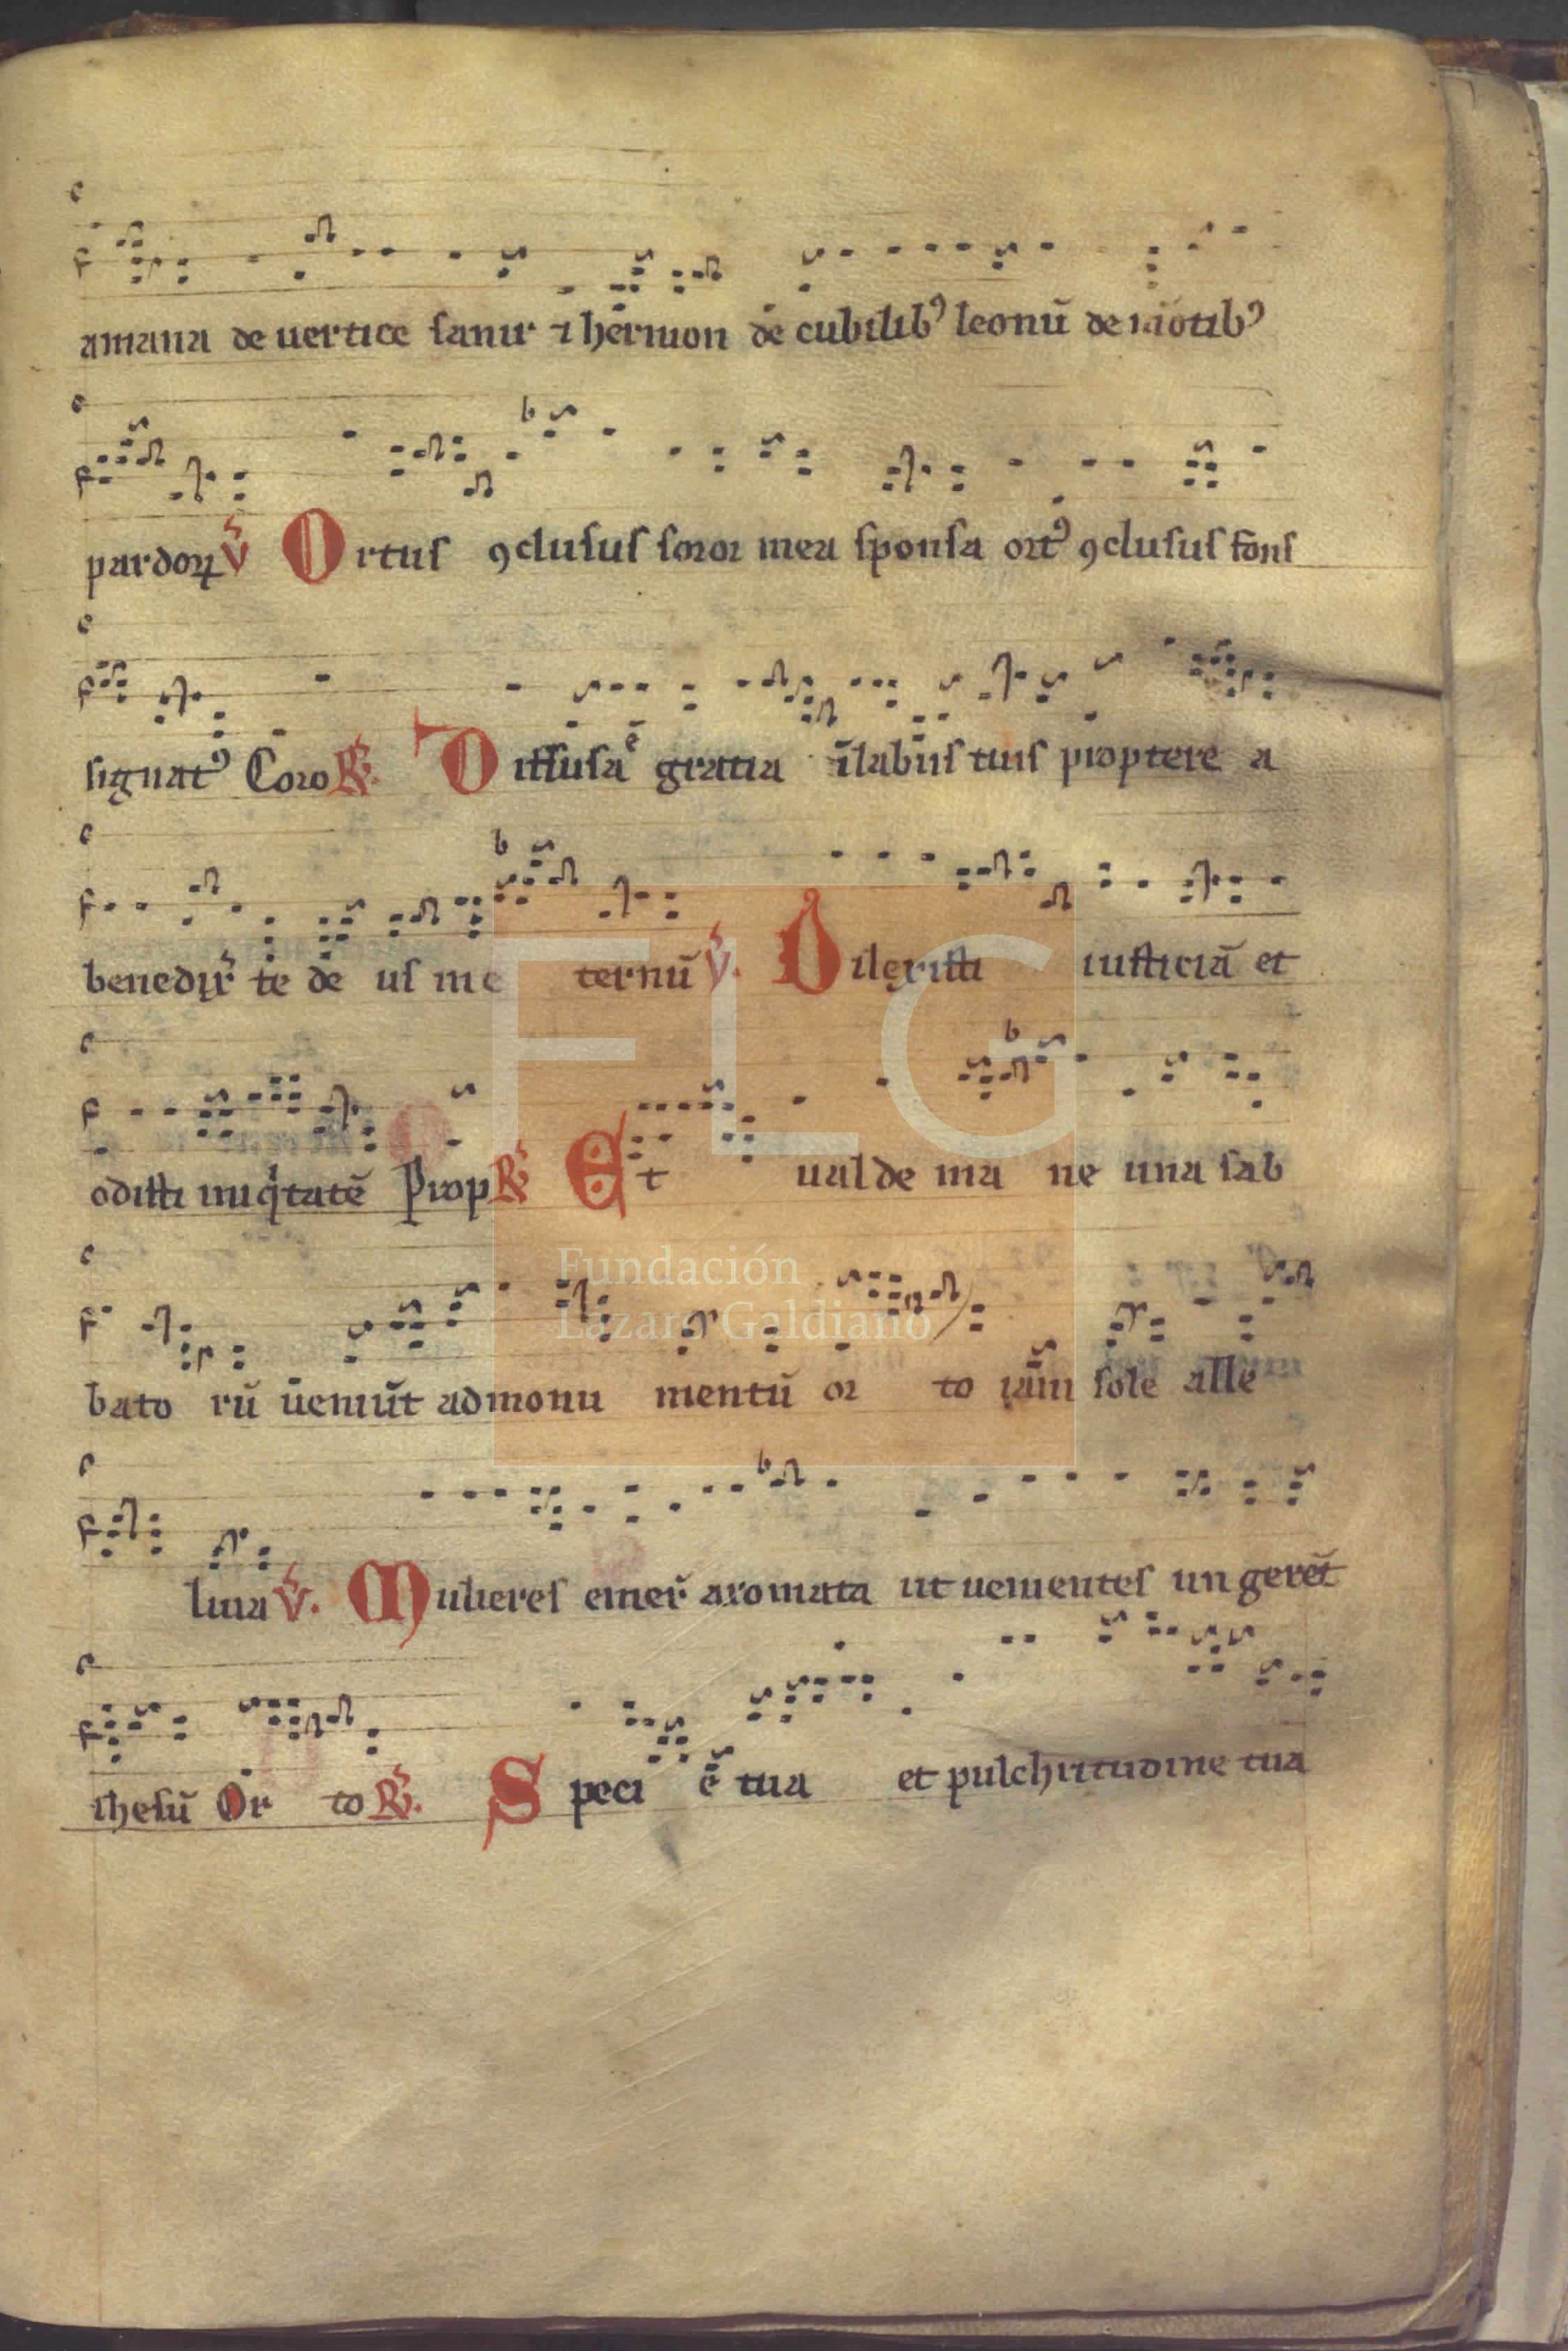 amana de uertice sanir ⁊ hermon de cubilibꝰ leonū de mōtibꝰ
pardoꝝ V̓ Ortus ꝯclusus soror mea sponsa ortꝰ ꝯclusus fons
signatꝰ Coro R̓. Diffusa ē gratia īlabiis tuis proptere a
benedix̓ te de us me ternū V̓. Dilexisti iusticiā et
odisti iniqͥtatē Prop R̓ Et ualde ma ne una sab
bato rū ueniūt ad monu mentū or to iam sole alle
luia V̓. Mulieres emer̄ aromata ut uenientes ungerēt
ihesū Or to R̓. Speci ē tua et pulchritudine tua
FLG
Fundación
Lázaro Galdiano